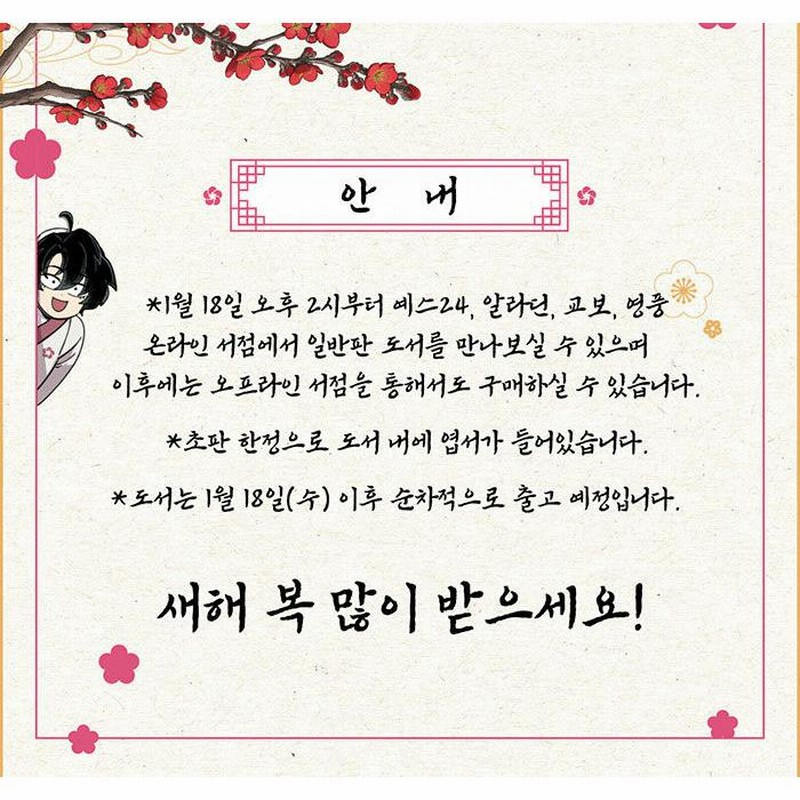 안 내
*1월 18일 오후 2시부터 예스24, 알라딘, 교보, 영풍
온라인 서점에서 일반판 도서를 만나보실 수 있으며
이후에는 오프라인 서점을 통해서도 구매하실 수 있습니다.
*초판 한정으로 도서 내에 엽서가 들어있습니다.
*도서는 1월 18일(수) 이후 순차적으로 출고 예정입니다.
새해 복 많이 받으세요!